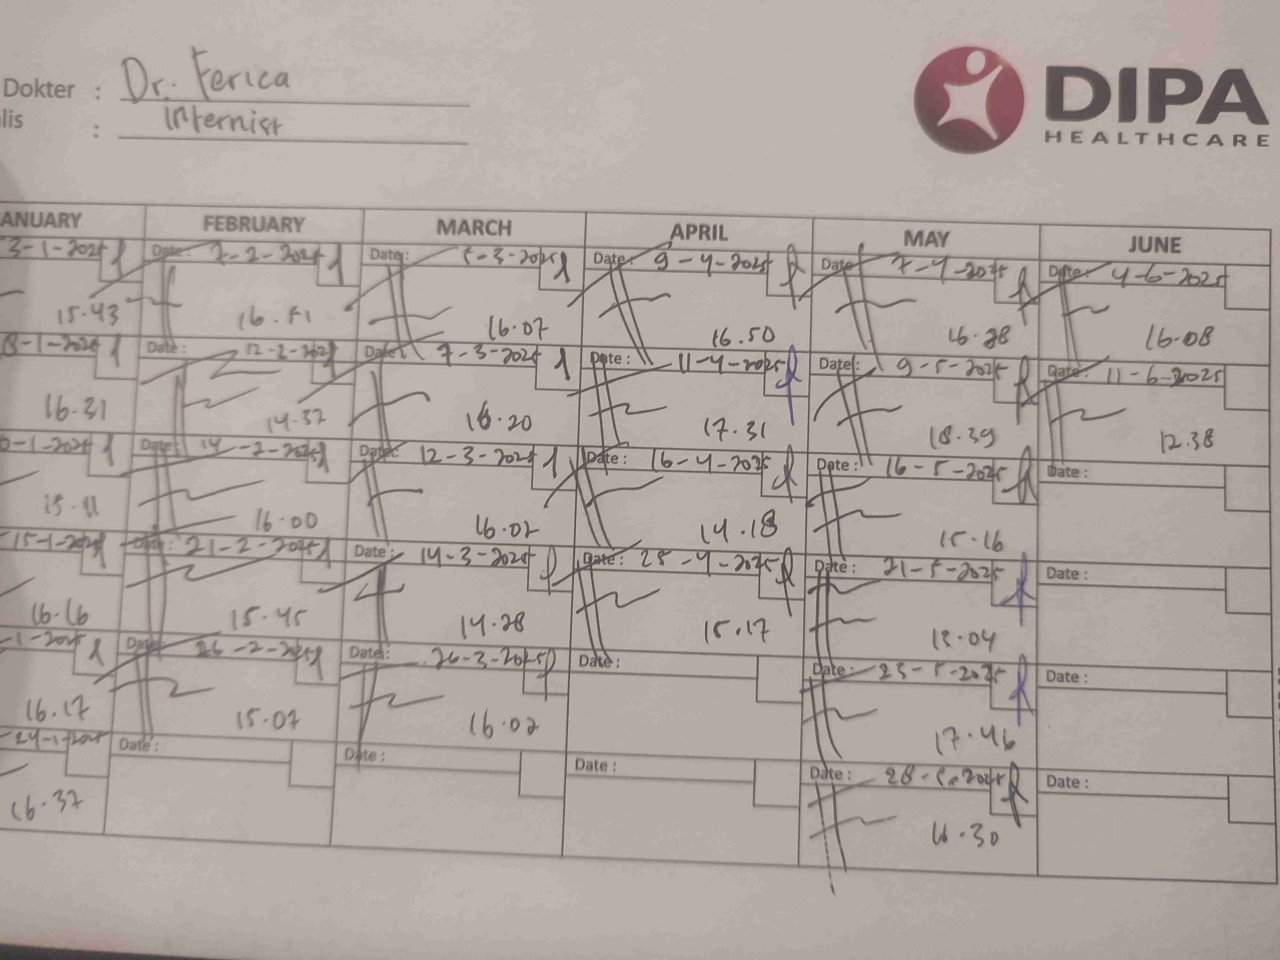 Dokter : Dr. Ferica
lis : Internist
DIPA
HEALTHCARE
ANUARY FEBRUARY MARCH APRIL MAY JUNE
3-1-2025 Date: 7-2-2025 Date: 5-3-2025 Date: 9-4-2025 Date: 7-4-2025 Date: 4-6-2025
15.43 16.51 16.07 16.50 16.28 16.08
8-1-2025 Date: 12-2-2025 Date: 7-3-2025 Date: 11-4-2025 Date: 9-5-2025 Date: 11-6-2025
16.31 14.37 16.20 17.31 18.39 12.38
0-1-2025 Date: 14-2-2025 Date: 12-3-2025 Date: 16-4-2025 Date: 16-5-2025 Date:
15.11 16.00 16.02 14.18 15.16
15-1-2025 Date: 21-2-2025 Date: 14-3-2025 Date: 25-4-2025 Date: 21-5-2025 Date:
16.16 15.45 14.28 15.17 13.04
-1-2025 Date: 26-2-2025 Date: 26-3-2025 Date: Date: 23-5-2025 Date:
16.17 15.07 16.02 17.46
24-1-2025 Date: Date: Date: Date: 28-5-2025 Date:
16.37 16.30